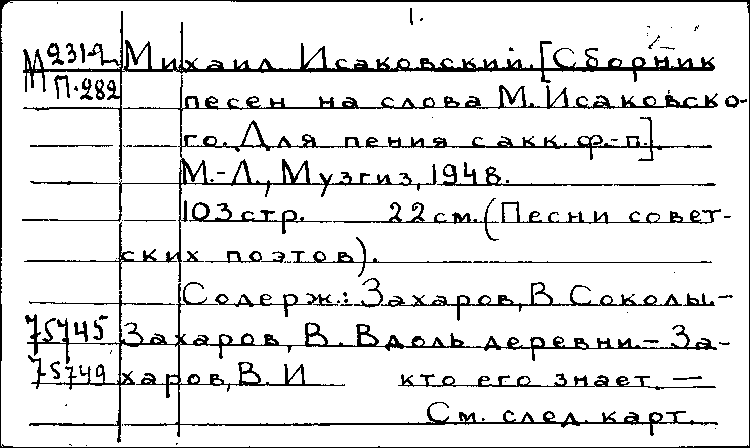 1.
М 231-2 Михаил Исаковский. [Сборник
П-282 песен на слова М. Исаковско-
го. Для пения с акк. ф.-п.].
М.-Л., Музгиз, 1948.
103 стр. 22 см. (Песни совет-
ских поэтов).
Содерж.: Захаров, В Соколы.-
75745 Захаров, В. Вдоль деревни.- За-
75749 харов, В. И кто его знает. —
См. след. карт.